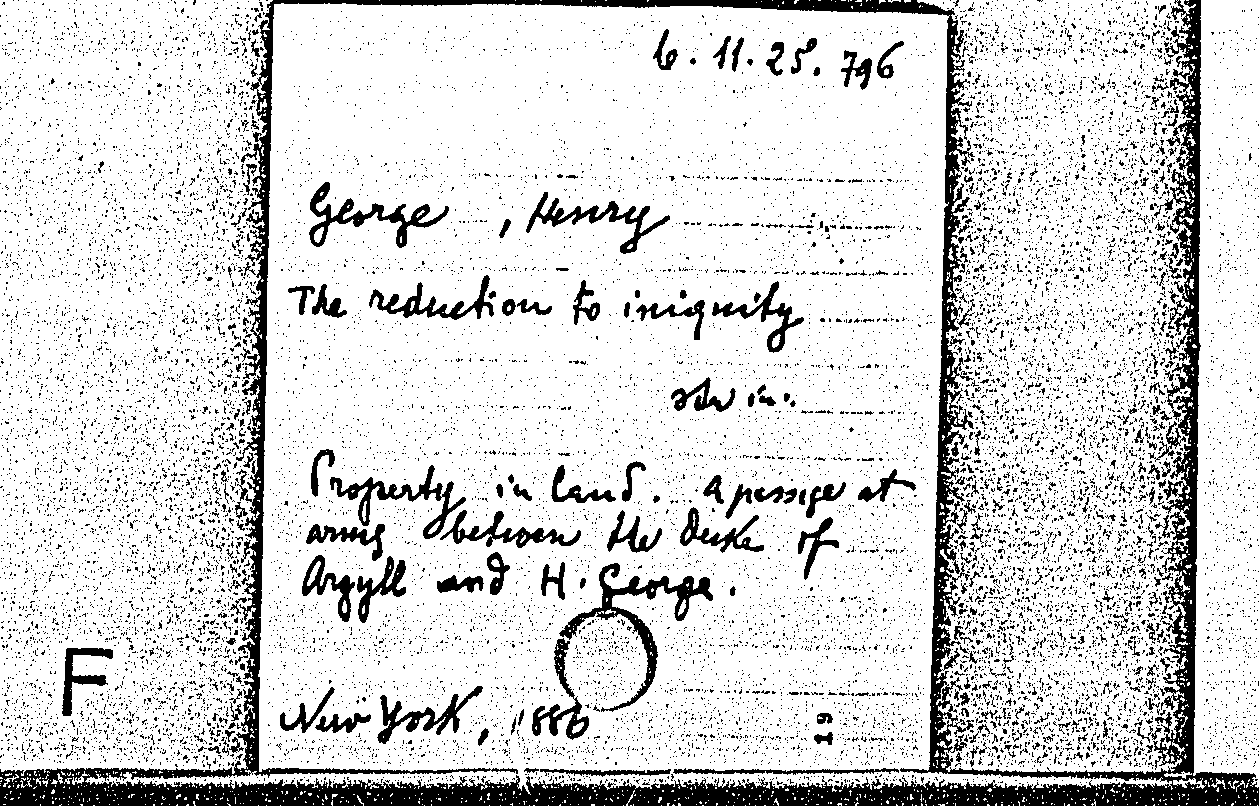 6. 11. 25. 796
George , Henry
The reduction to iniquity
in:
Property in land. A passage at
arms between the Duke of
Argyll and H. George.
F
New York, 1886
19